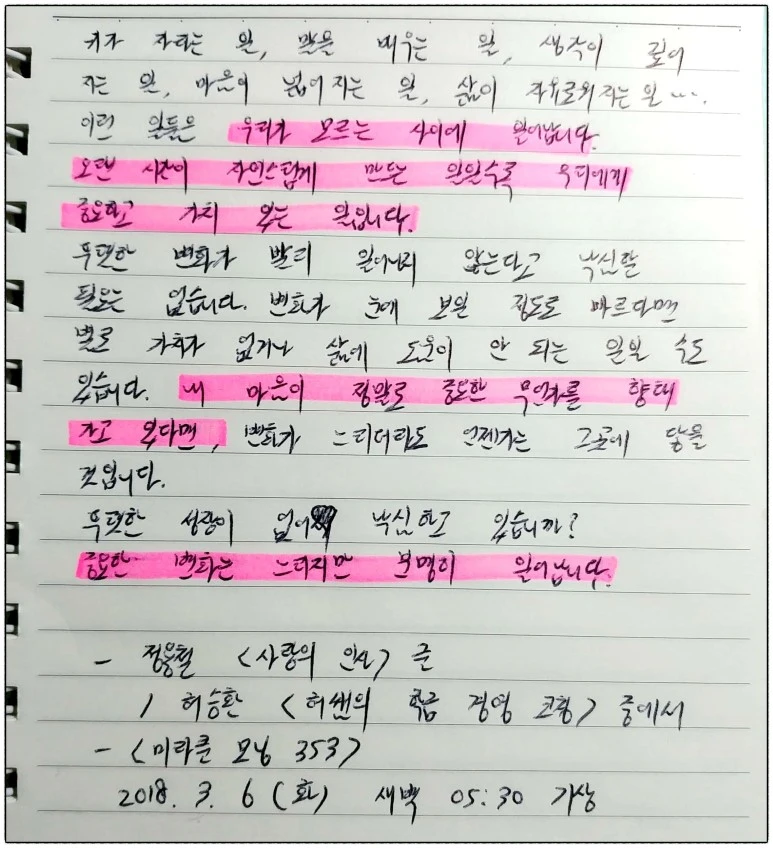 키가 자라는 일, 말을 배우는 일, 생각이 깊어
지는 일, 마음이 넓어지는 일, 삶이 자유로워지는 일….
이런 일들은 우리가 모르는 사이에 일어납니다.
오랜 시간이 자연스럽게 만드는 일일수록 우리에게
중요하고 가치 있는 일입니다.
뚜렷한 변화가 빨리 일어나지 않는다고 낙심할
필요는 없습니다. 변화가 눈에 보일 정도로 빠르다면
별로 가치가 없거나 삶에 도움이 안 되는 일일 수도
있습니다. 내 마음이 정말로 중요한 무언가를 향해
가고 있다면, 변화가 느리더라도 언젠가는 그곳에 닿을
것입니다.
뚜렷한 성장이 없어 낙심하고 있습니까?
중요한 변화는 느리지만 분명히 일어납니다.
- 정용철 <사랑의 인사> 글
/ 허승환 <허쌤의 학급 경영 코칭> 중에서
- <미라클 모닝 353>
2018. 3. 6 (화) 새벽 05:30 기상